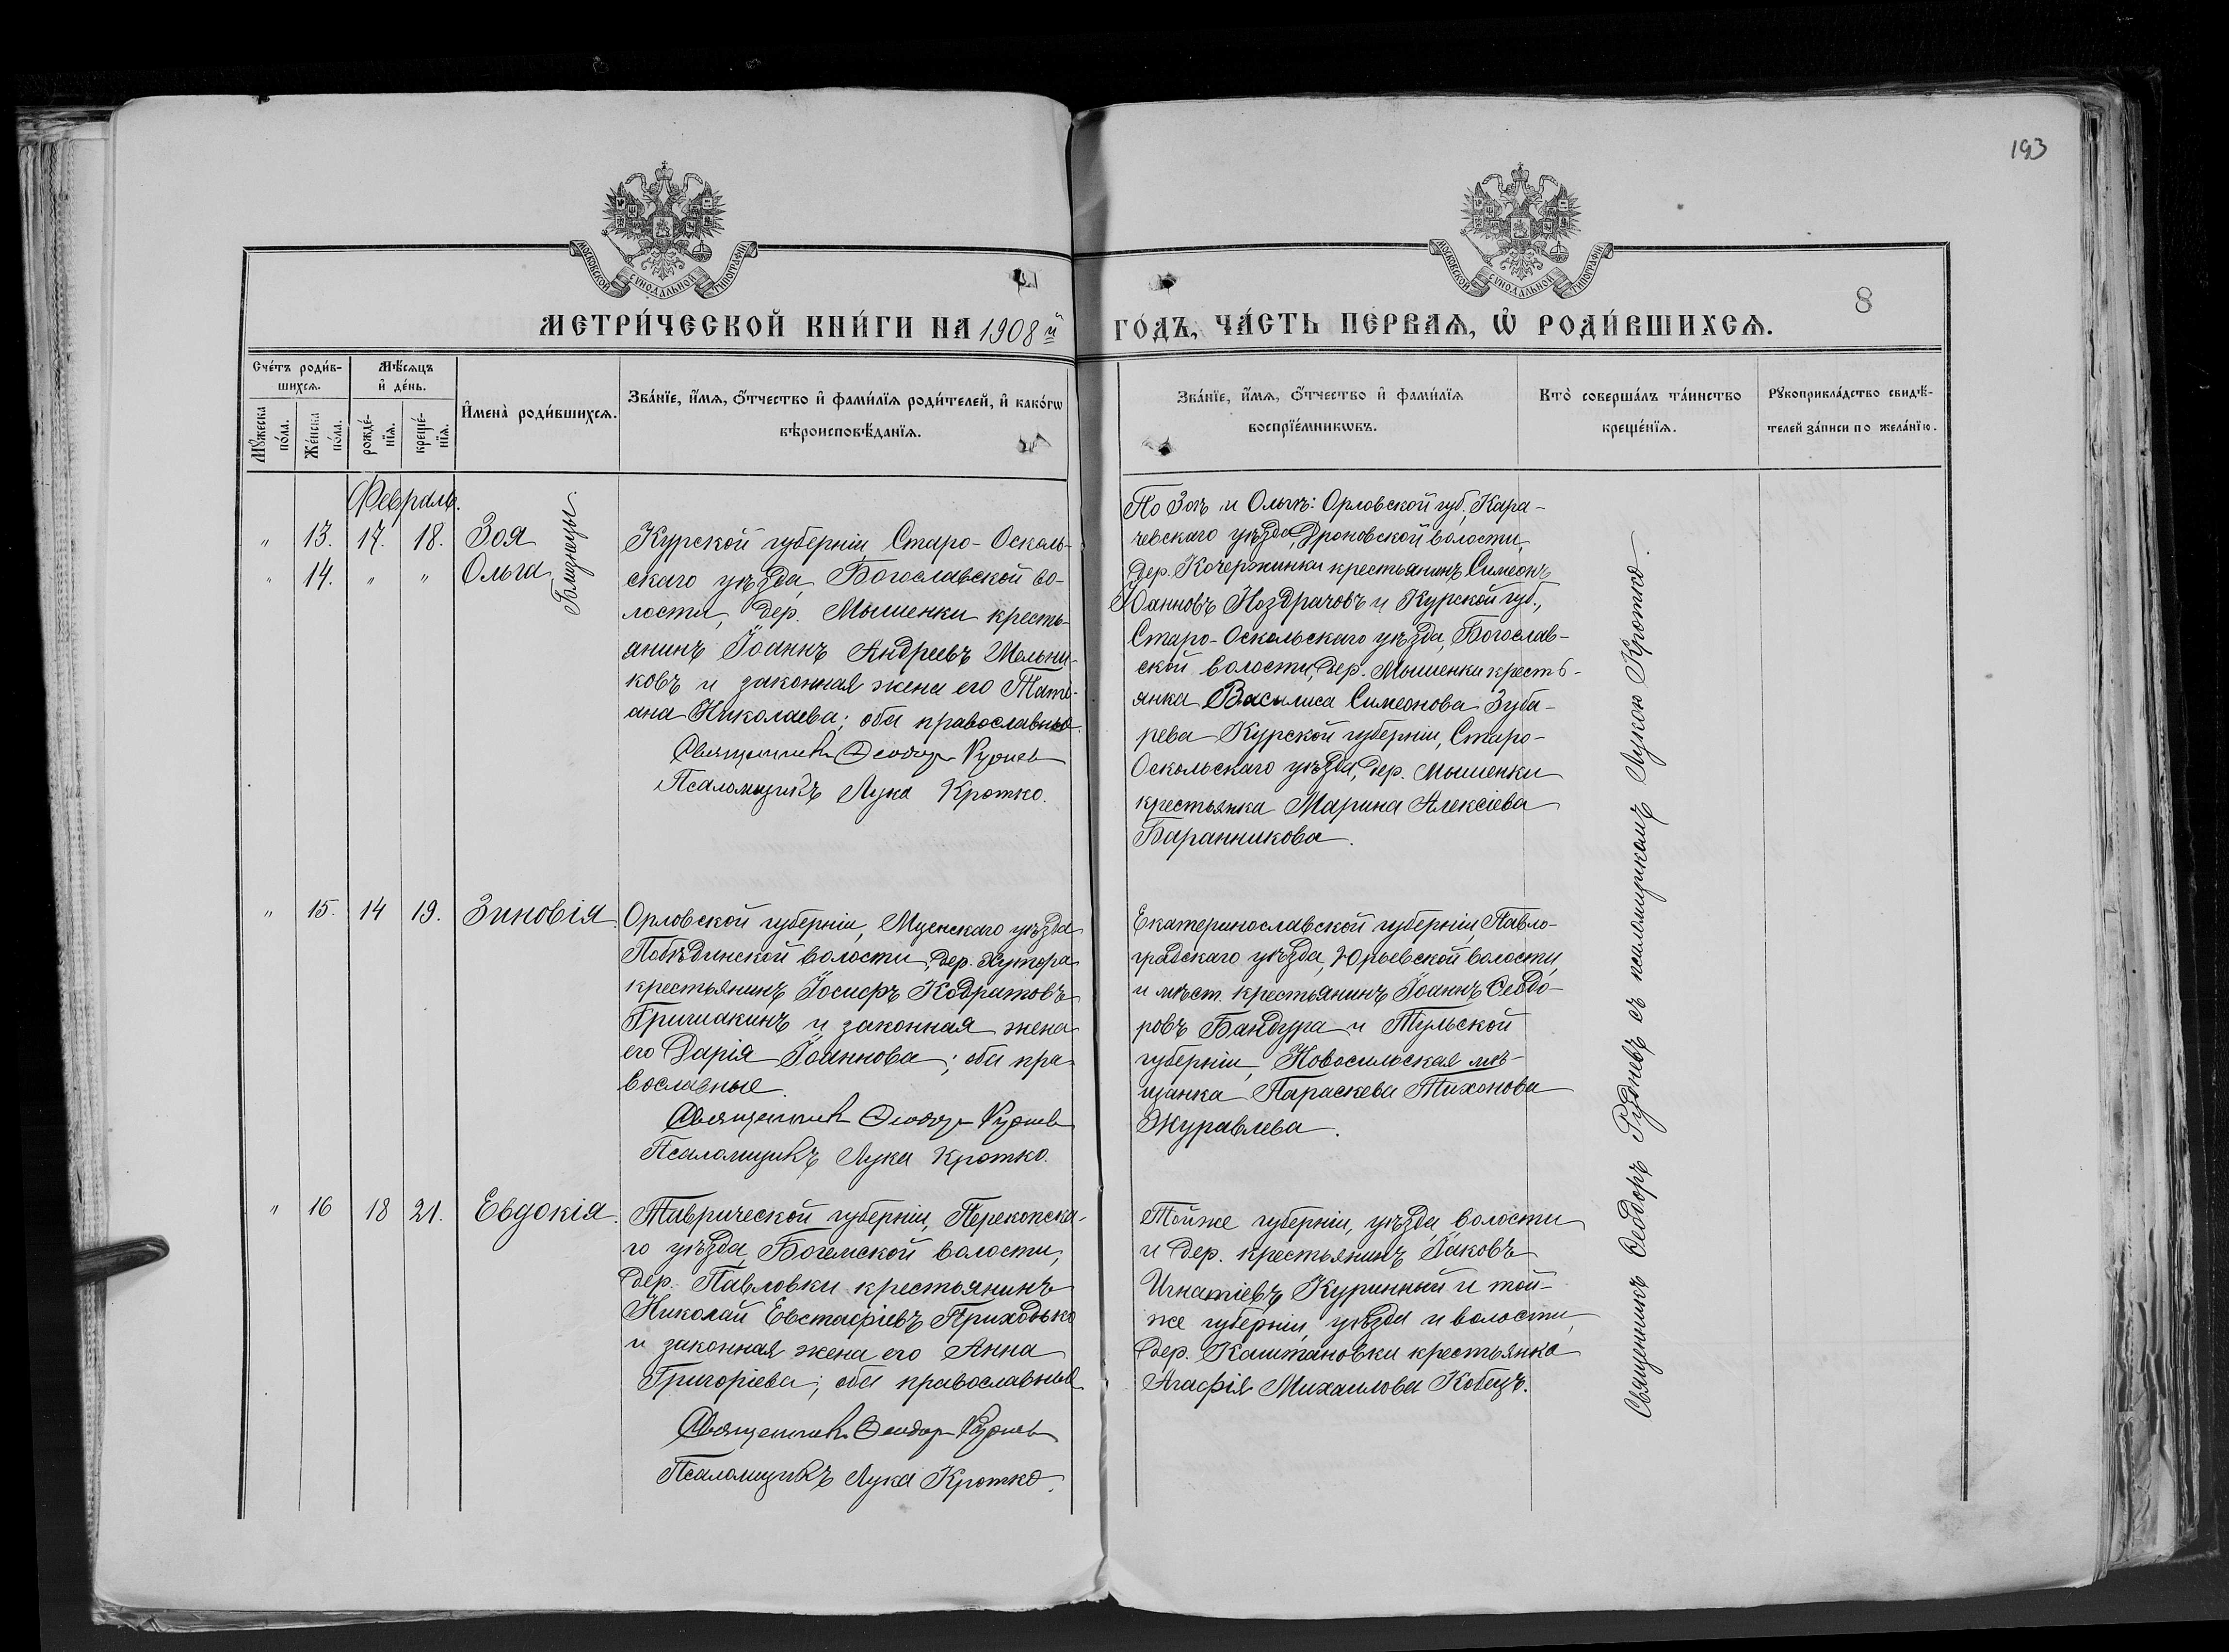 193
МОСКОВСКОЙ СУНОДАЛЬНОЙ ТИПОГРАФІИ
МОСКОВСКОЙ СУНОДАЛЬНОЙ ТИПОГРАФІИ
8
МЕТРИ́ЧЕСКОЙ КНИ́ГИ НА 1908 й
ГО́ДЪ, ЧА́СТЬ ПЕ́РВАѦ, Ѡ҆ РОДИ́ВШИХСѦ.
Сче́тъ роди́в-
шихсѧ.
Мѣ́сѧцъ
и҆ де́нь.
Мꙋ́жеска
по́ла.
Же́нска
по́ла.
рожде́-
нїѧ.
креще́-
нїѧ.
И҆мена̀ роди́вшихсѧ.
Зва́нїе, и҆́мѧ, ѻ҆́тчество и҆ фами́лїѧ роди́телей, и҆ како́гѡ
вѣроисповѣ́данїѧ.
Зва́нїе, и҆́мѧ, ѻ҆́тчество и҆ фами́лїѧ
воспрїе́мникѡвъ.
Кто̀ соверша́лъ та́инство
креще́нїѧ.
Рꙋкоприкла́дство свидѣ́-
телей за́писи по жела́нїю.
Февраль.
" 13. 17. 18. Зоя
" 14. " " Ольга
Близнецы.
Курской губерніи, Старо-Осколь-
скаго уѣзда, Богославской во-
лости, дер. Мышенки кресть-
янинъ Іоаннъ Андреевъ Мельни-
ковъ и законная жена его Тать-
ана Николаева; оба православные.
Священникъ Ѳеодоръ Рудневъ
Псаломщикъ Лука Кротко.
По Зоѣ и Ольгѣ: Орловской губ., Кара-
чевскаго уѣзда, Дроновской волости,
дер. Кочержинки крестьянинъ Симеонъ
Іоанновъ Ноздрачовъ и Курской губ.,
Старо-Оскольскаго уѣзда, Богослав-
ской волости, дер. Мышенки кресть-
янка Василиса Симеонова Зуба-
рева Курской губерніи, Старо-
Оскольскаго уѣзда, дер. Мышенки
крестьянка Марина Алексіева
Баранникова.
" 15. 14 19. Зиновія.
Орловской губерніи, Мценскаго уѣзда
Побѣдинской волости, дер. Хутора
крестьянинъ Іосифъ Кодратовъ
Гришакинъ и законная жена
его Дарія Іоаннова; оба пра-
вославные.
Священникъ Ѳеодоръ Рудневъ
Псаломщикъ Лука Кротко.
Екатеринославской губерніи, Павло-
градскаго уѣзда, Юрьевской волости,
и мѣст. крестьянинъ Іоаннъ Ѳеодо-
ровъ Бандура и Тульской
губерніи, Новосильская мѣ-
щанка Параскева Тихонова
Журавлева.
" 16 18 21. Евдокія.
Таврической губерніи, Перекопска-
го уѣзда, Богемской волости,
дер. Павловки крестьянинъ
Николай Евстафіевъ Приходько
и законная жена его Анна
Григоріева; оба православные.
Священникъ Ѳеодоръ Рудневъ
Псаломщикъ Лука Кротко.
Тойже губерніи, уѣзда, волости
и дер. крестьянинъ Іаковъ
Игнатіевъ Куринный и той-
же губерніи, уѣзда и волости,
дер. Каштановки крестьянка
Агафія Михаилова Кобецъ.
Священникъ Ѳеодоръ Рудневъ съ псаломщикомъ Лукою Кротко.